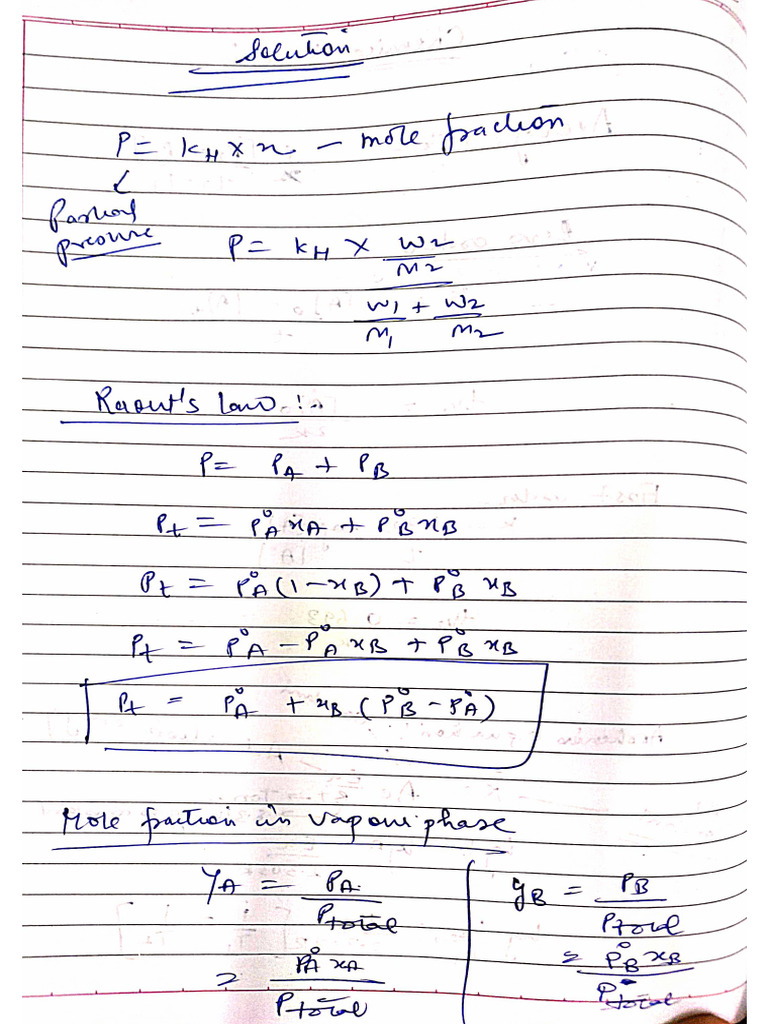 Solution
P = KH × x – mole fraction
Partial
pressure
P = KH × W2
M2
W1 + W2
M1 M2
Raoult's Law :-
P = PA + PB
Pt = P°A xA + P°B xB
Pt = P°A (1 - xB) + P°B xB
Pt = P°A - P°A xB + P°B xB
Pt = P°A + xB (P°B - P°A)
Mole fraction in vapour phase
YA = PA
Ptotal
= P°A xA
Ptotal
yB = PB
Ptotal
= P°B xB
Ptotal